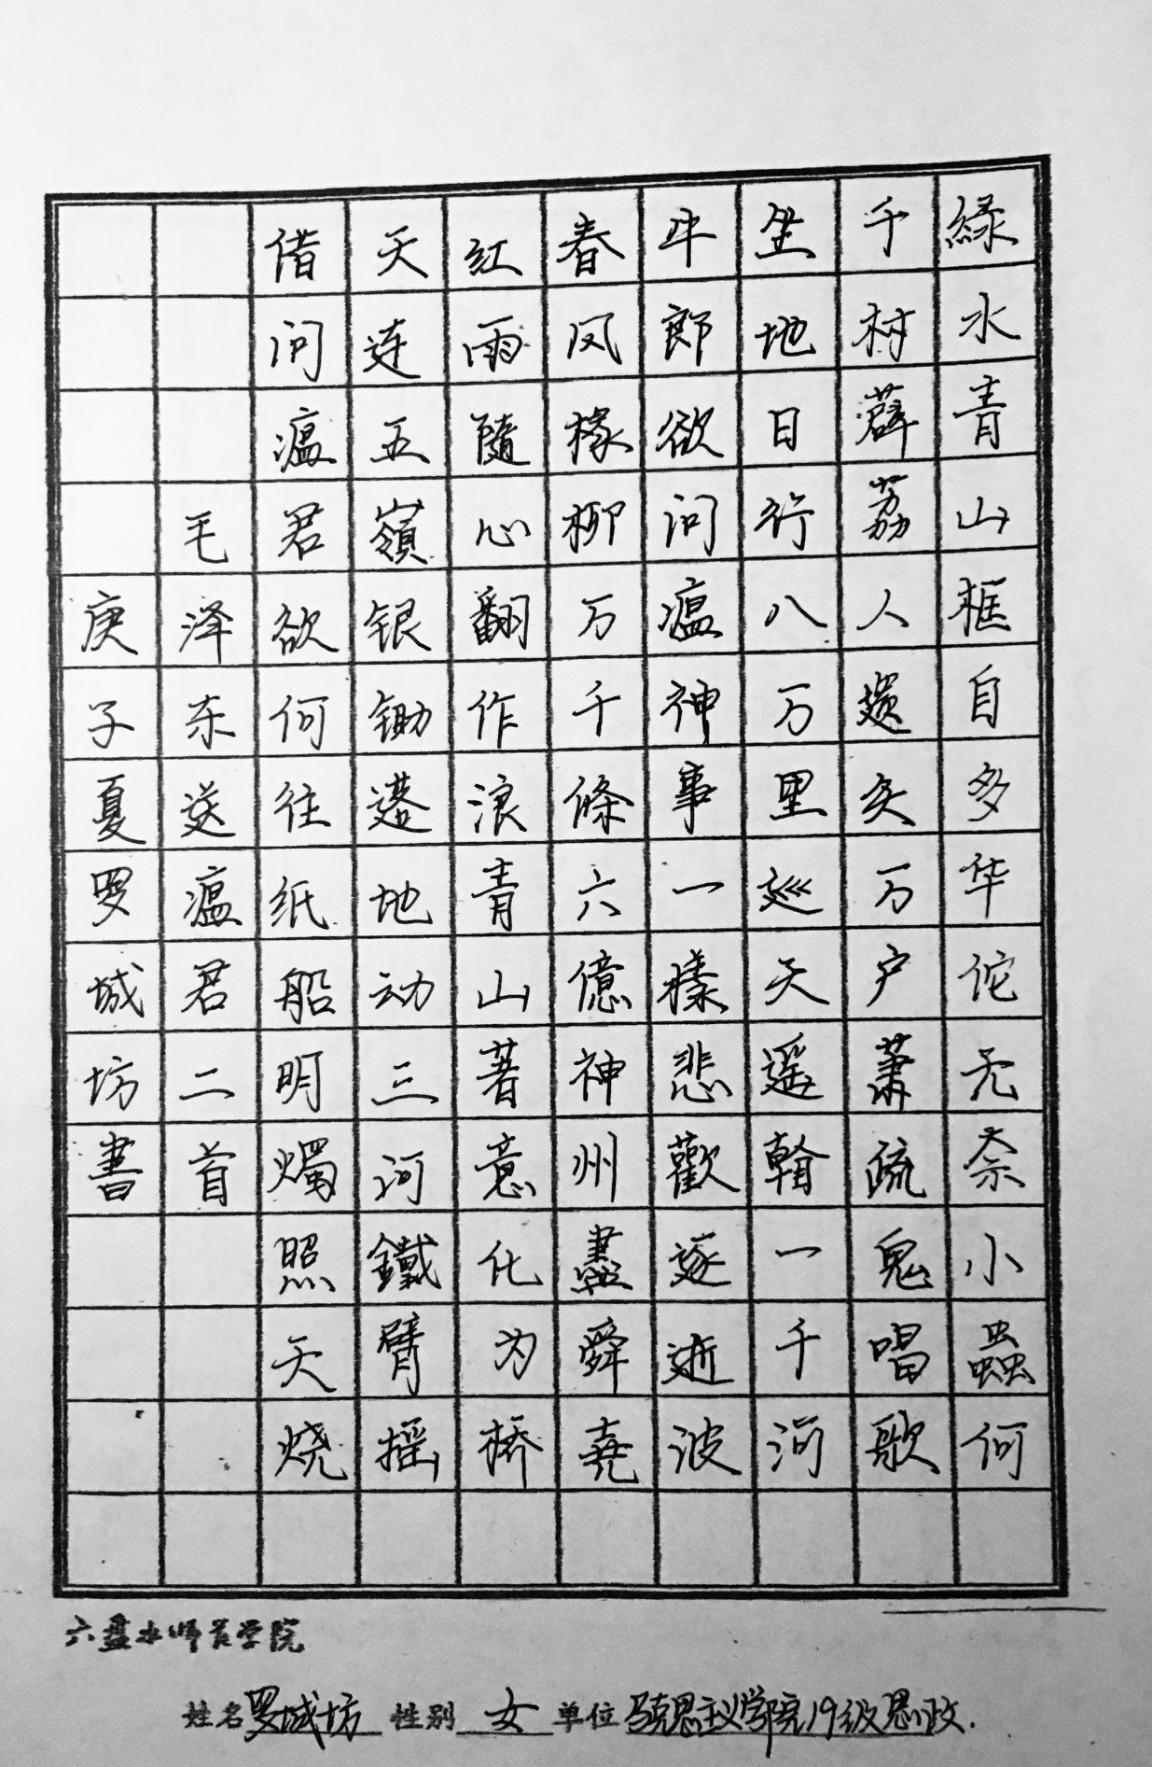 綠水青山框自多华佗无奈小蟲何
千村薜荔人遗矢万户萧疏鬼唱歌
坐地日行八万里巡天遥翰一千河
牛郎欲问瘟神事一樣悲歡逐逝波
春风楊柳万千條六億神州盡舜堯
红雨隨心翻作浪青山著意化为桥
天连五嶺银锄落地动三河鐵臂摇
借问瘟君欲何往纸船明燭照天烧
毛泽东送瘟君二首
庚子夏罗城坊書
六盘水师范学院
姓名罗城坊 性别 女 单位 马克思主义学院19级思政.